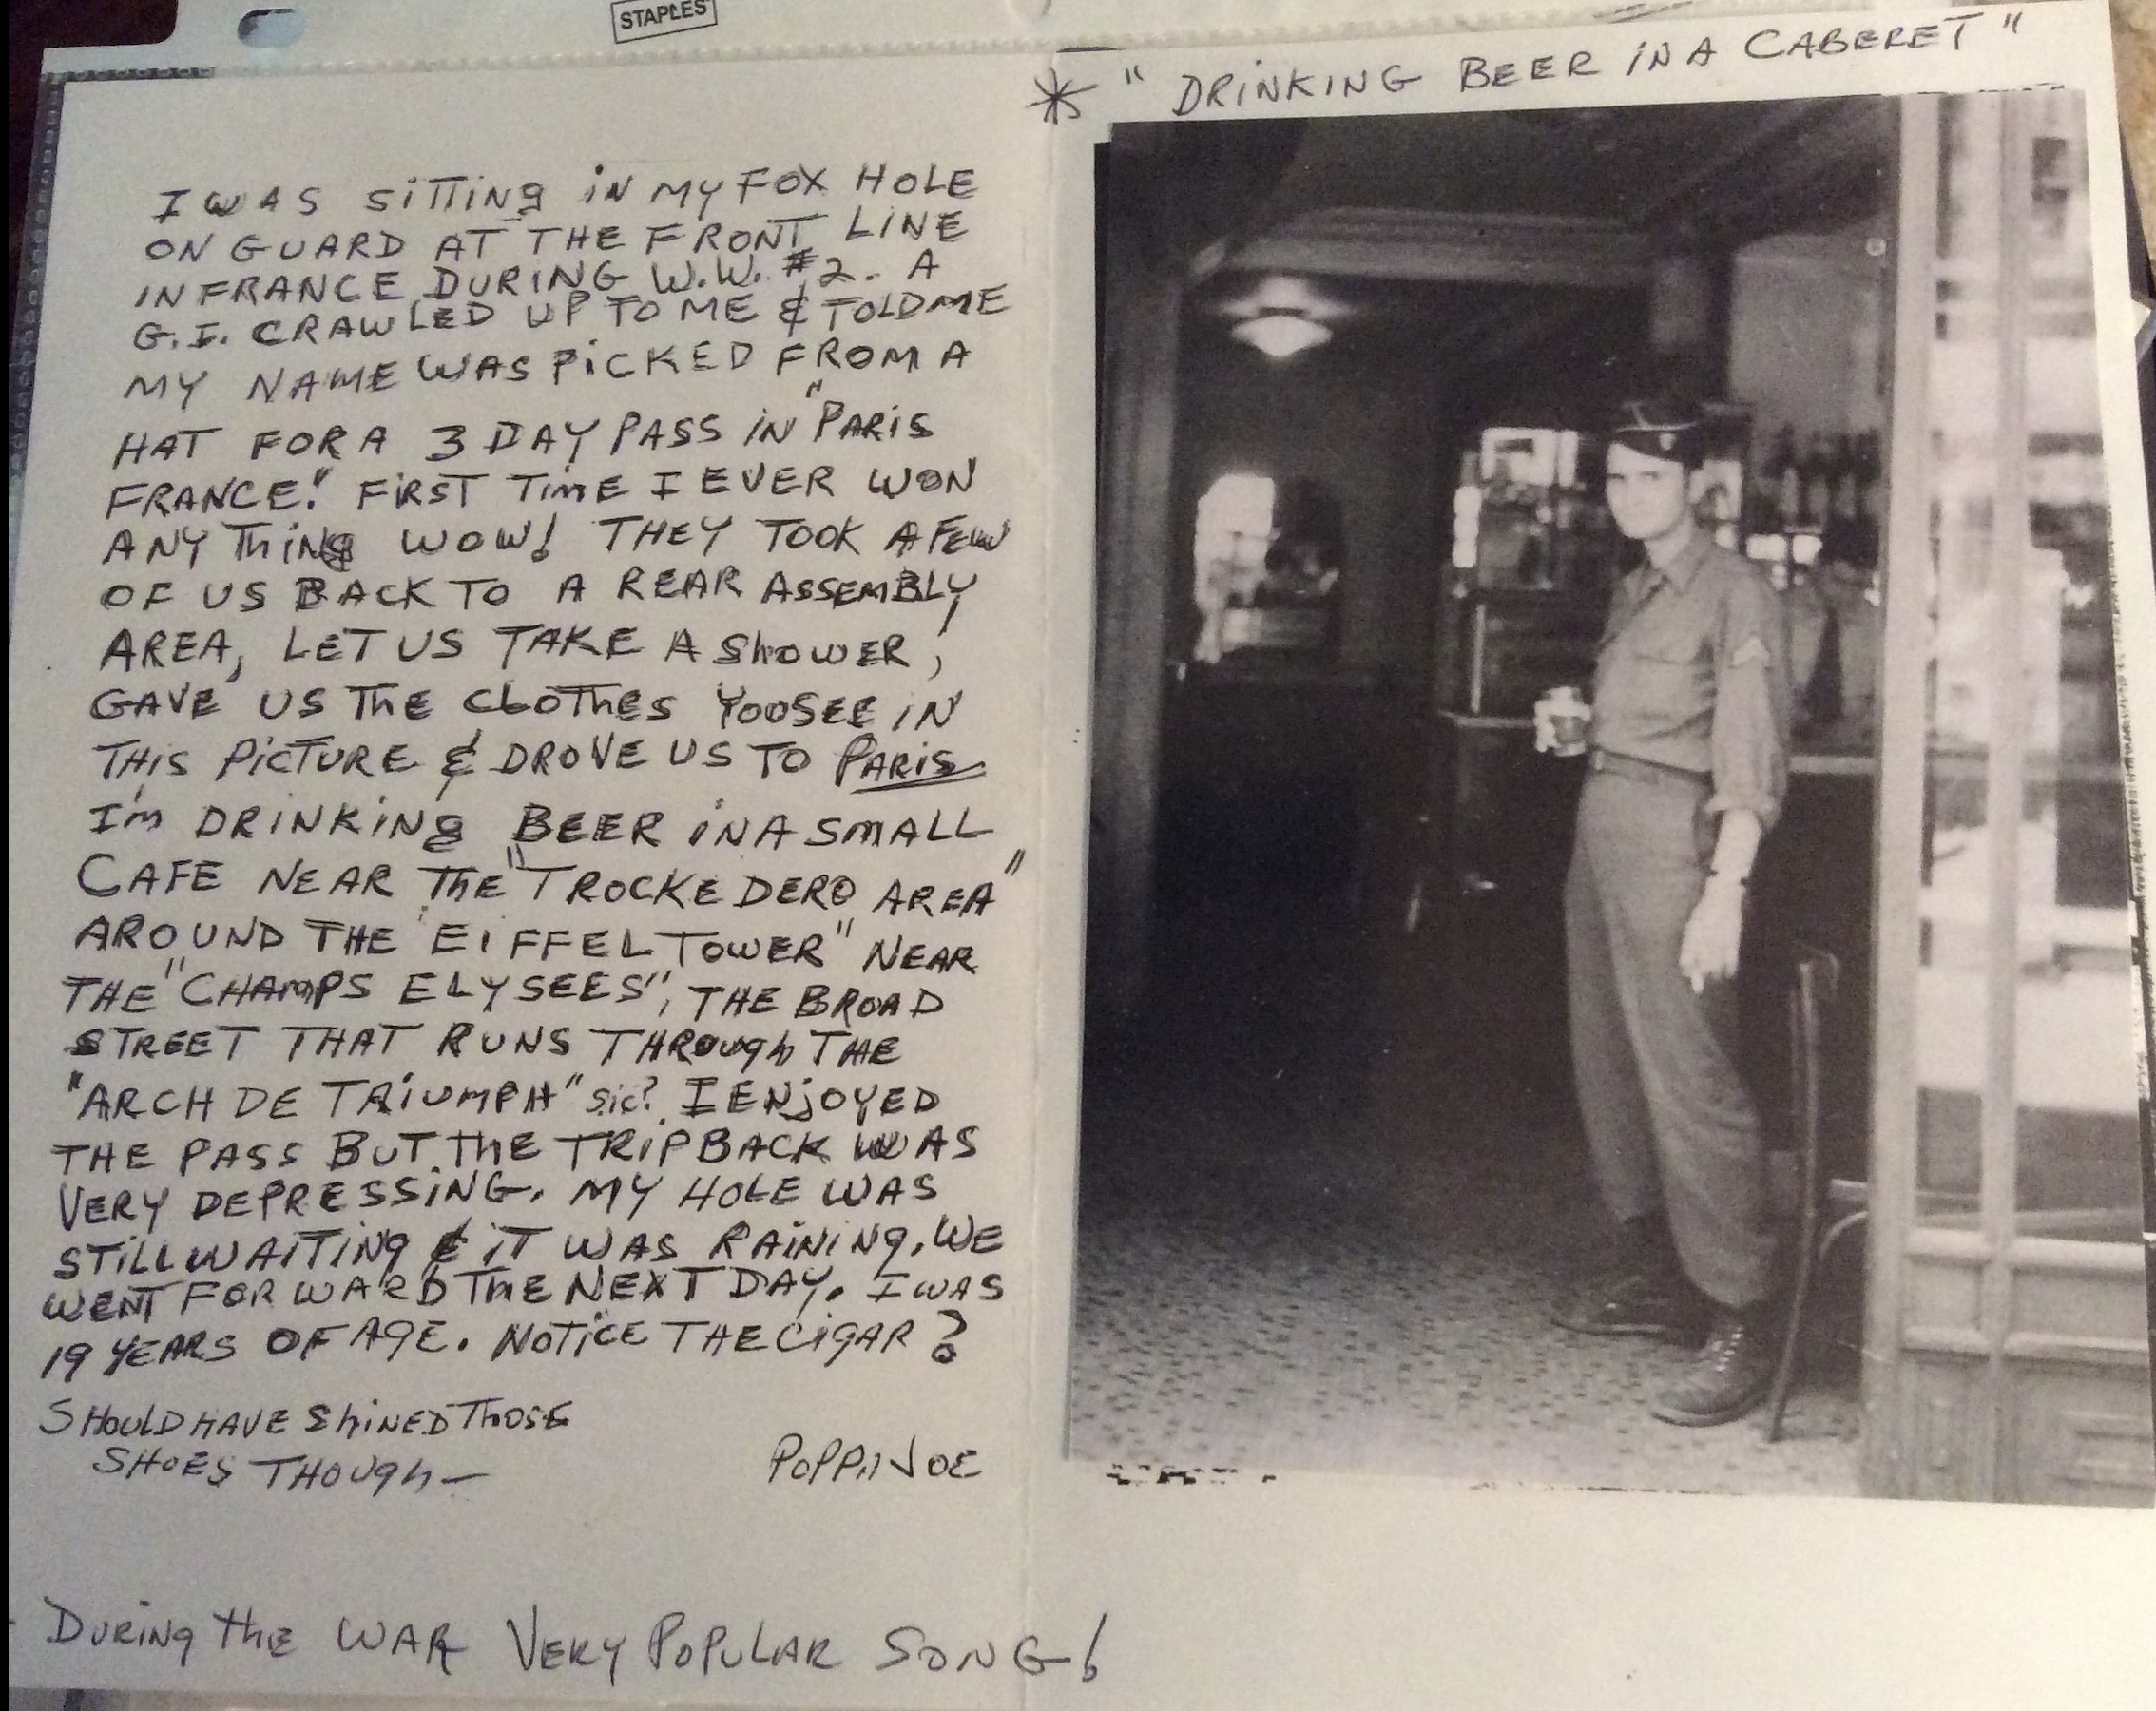 STAPLES
* " DRINKING BEER IN A CABERET "
I WAS SITTING IN MY FOX HOLE
ON GUARD AT THE FRONT LINE
IN FRANCE DURING W.W. #2. A
G.I. CRAWLED UP TO ME & TOLD ME
MY NAME WAS PICKED FROM A
HAT FOR A 3 DAY PASS IN "PARIS
FRANCE." FIRST TIME I EVER WON
ANYTHING WOW! THEY TOOK A FEW
OF US BACK TO A REAR ASSEMBLY
AREA, LET US TAKE A SHOWER,
GAVE US THE CLOTHES YOU SEE IN
THIS PICTURE & DROVE US TO PARIS
I'M DRINKING BEER IN A SMALL
CAFE NEAR THE "TROCKEDERO AREA"
AROUND THE EIFFEL TOWER" NEAR
THE "CHAMPS ELYSEES", THE BROAD
STREET THAT RUNS THROUGH THE
"ARCH DE TRIUMPH" sic? I ENJOYED
THE PASS BUT THE TRIP BACK WAS
VERY DEPRESSING. MY HOLE WAS
STILL WAITING & IT WAS RAINING. WE
WENT FORWARD THE NEXT DAY. I WAS
19 YEARS OF AGE. NOTICE THE CIGAR?
SHOULD HAVE SHINED THOSE
SHOES THOUGH—
POPPA JOE
DURING THE WAR VERY POPULAR SONG!